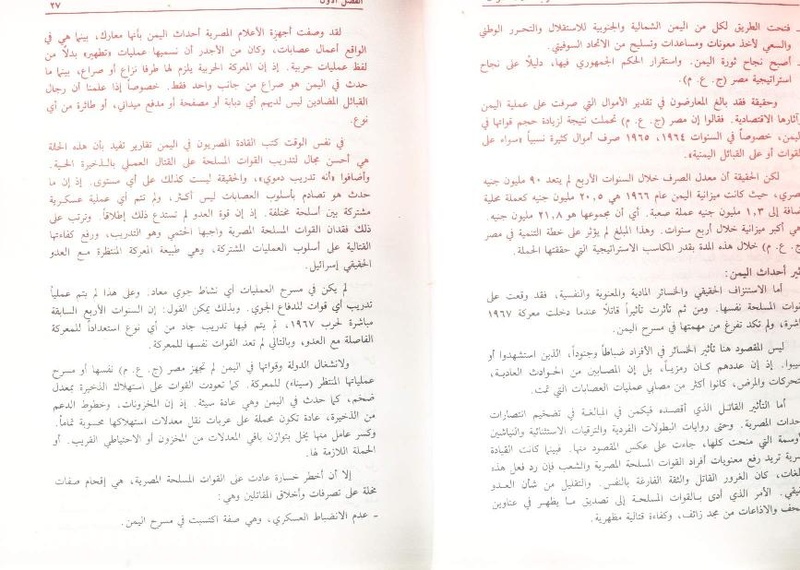 ـ فتحت الطريق لكل من اليمن الشمالية والجنوبية للاستقلال والتحرر الوطني
والسعي لأخذ معونات ومساعدات وتسليح من الاتحاد السوفيتي.
ـ أصبح نجاح ثورة اليمن. واستقرار الحكم الجمهوري فيها، دليلاً على نجاح
استراتيجية مصر (ج. ع. م).
وحقيقة فقد بالغ المعارضون في تقدير الأموال التي صرفت على عملية اليمن
وآثارها الاقتصادية. فقالوا إن مصر (ج. ع. م) تحملت نتيجة لزيادة حجم قواتها في
اليمن، خصوصاً في السنوات ١٩٦٤، ١٩٦٥ صرف أموال كثيرة نسبياً «سواء على
القوات أو على القبائل اليمنية».
لكن الحقيقة أن معدل الصرف خلال السنوات الأربع لم يتعد ٩٠ مليون جنيه
مصري، حيث كانت ميزانية اليمن عام ١٩٦٦ هي ٢٠,٥ مليون جنيه كعملة محلية
إضافة إلى ١,٣ مليون جنيه عملة صعبة. أي أن مجموعها هو ٢١,٨ مليون جنيه.
وهي أكبر ميزانية خلال أربع سنوات. وهذا المبلغ لم يؤثر على خطة التنمية في مصر
(ج. ع. م) خلال هذه المدة بقدر المكاسب الاستراتيجية التي حققتها الحملة.
تأثير أحداث اليمن:
أما الاستنزاف الحقيقي والخسائر المادية والمعنوية والنفسية، فقد وقعت على
القوات المسلحة نفسها. ومن ثم تأثرت تأثيراً قاتلاً عندما دخلت معركة ١٩٦٧
مباشرة، ولم تكد تفرغ من مهمتها في مسرح اليمن.
ليس المقصود هنا تأثير الخسائر في الأفراد ضباطاً وجنوداً، الذين استشهدوا أو
أصيبوا. إذ إن عددهم كان رمزياً، بل إن المصابين من الحوادث العادية،
والتحركات والمرض، كانوا أكثر من مصابي عمليات العصابات التي تمت.
أما التأثير القاتل الذي أقصده فيكمن في المبالغة في تضخيم انتصارات
الوحدات المصرية. وحتى روايات البطولات الفردية والترقيات الاستثنائية والنياشين
والأوسمة التي منحت كلها، جاءت على عكس المقصود منها. فبينما كانت القيادة
المصرية تريد رفع معنويات أفراد القوات المسلحة المصرية والشعب فإن رد فعل هذه
المبالغات، كان الغرور القاتل والثقة الفارغة بالنفس. والتقليل من شأن العدو
الحقيقي. الأمر الذي أدى بالقوات المسلحة إلى تصديق ما يظهر في عناوين
الصحف والاذاعات من مجد زائف، وكفاءة قتالية مظهرية.
الفصل الأول
٢٧
لقد وصفت أجهزة الأعلام المصرية أحداث اليمن بأنها معارك، بينما هي في
الواقع أعمال عصابات، وكان من الأجدر أن نسميها عمليات «تطهير» بدلاً من
لفظ عمليات حربية. إذ إن المعركة الحربية يلزم لها طرفا نزاع أو صراع، بينما ما
حدث في اليمن هو صراع من جانب واحد فقط. خصوصاً إذا علمنا أن رجال
القبائل المضادين ليس لديهم أي دبابة أو مصفحة أو مدفع ميداني، أو طائرة من أي
نوع.
في نفس الوقت كتب القادة المصريون في اليمن تقارير تفيد بأن هذه الحالة
هي أحسن مجال لتدريب القوات المسلحة على القتال العملي بالذخيرة الحية.
وأضافوا «أنه تدريب دموي»، والحقيقة ليست كذلك على أي مستوى. إذ إن ما
حدث هو تصادم بأسلوب العصابات ليس أكثر، ولم تتم أي عملية عسكرية
مشتركة بين أسلحة مختلفة. إذ إن قوة العدو لم تستدع ذلك إطلاقاً. وترتب على
ذلك فقدان القوات المسلحة المصرية واجبها الحتمي وهو التدريب، ورفع كفاءتها
القتالية على أسلوب العمليات المشتركة، وهي طبيعة المعركة المنتظرة مع العدو
الحقيقي إسرائيل.
لم يكن في مسرح العمليات أي نشاط جوي معاد. وعلى هذا لم يتم عملياً
تدريب أي قوات للدفاع الجوي. وبذلك يمكن القول: إن السنوات الأربع السابقة
مباشرة لحرب ١٩٦٧، لم يتم فيها تدريب جاد من أي نوع استعداداً للمعركة
الفاصلة مع العدو، وبالتالي لم تعد القوات نفسها للمعركة.
ولانشغال الدولة وقواتها في اليمن لم تجهز مصر (ج. ع. م) نفسها أو مسرح
عملياتها المنتظر (سيناء) للمعركة. كما تعودت القوات على استهلاك الذخيرة بمعدل
ضخم، كما حدث في اليمن وهي عادة سيئة. إذ إن المخزونات، وخطوط الدعم
من الذخيرة، عادة تكون محملة على عربات نقل معدلات استهلاكها محسوبة تماماً.
وكسر عامل منها يخل بتوازن باقي المعدلات من المخزون أو الاحتياطي القريب. أو
الحملة اللازمة لها.
إلا أن أخطر خسارة عادت على القوات المسلحة المصرية، هي إقحام صفات
مخلة على تصرفات وأخلاق المقاتلين وهي:
ـ عدم الانضباط العسكري، وهي صفة اكتسبت في مسرح اليمن.